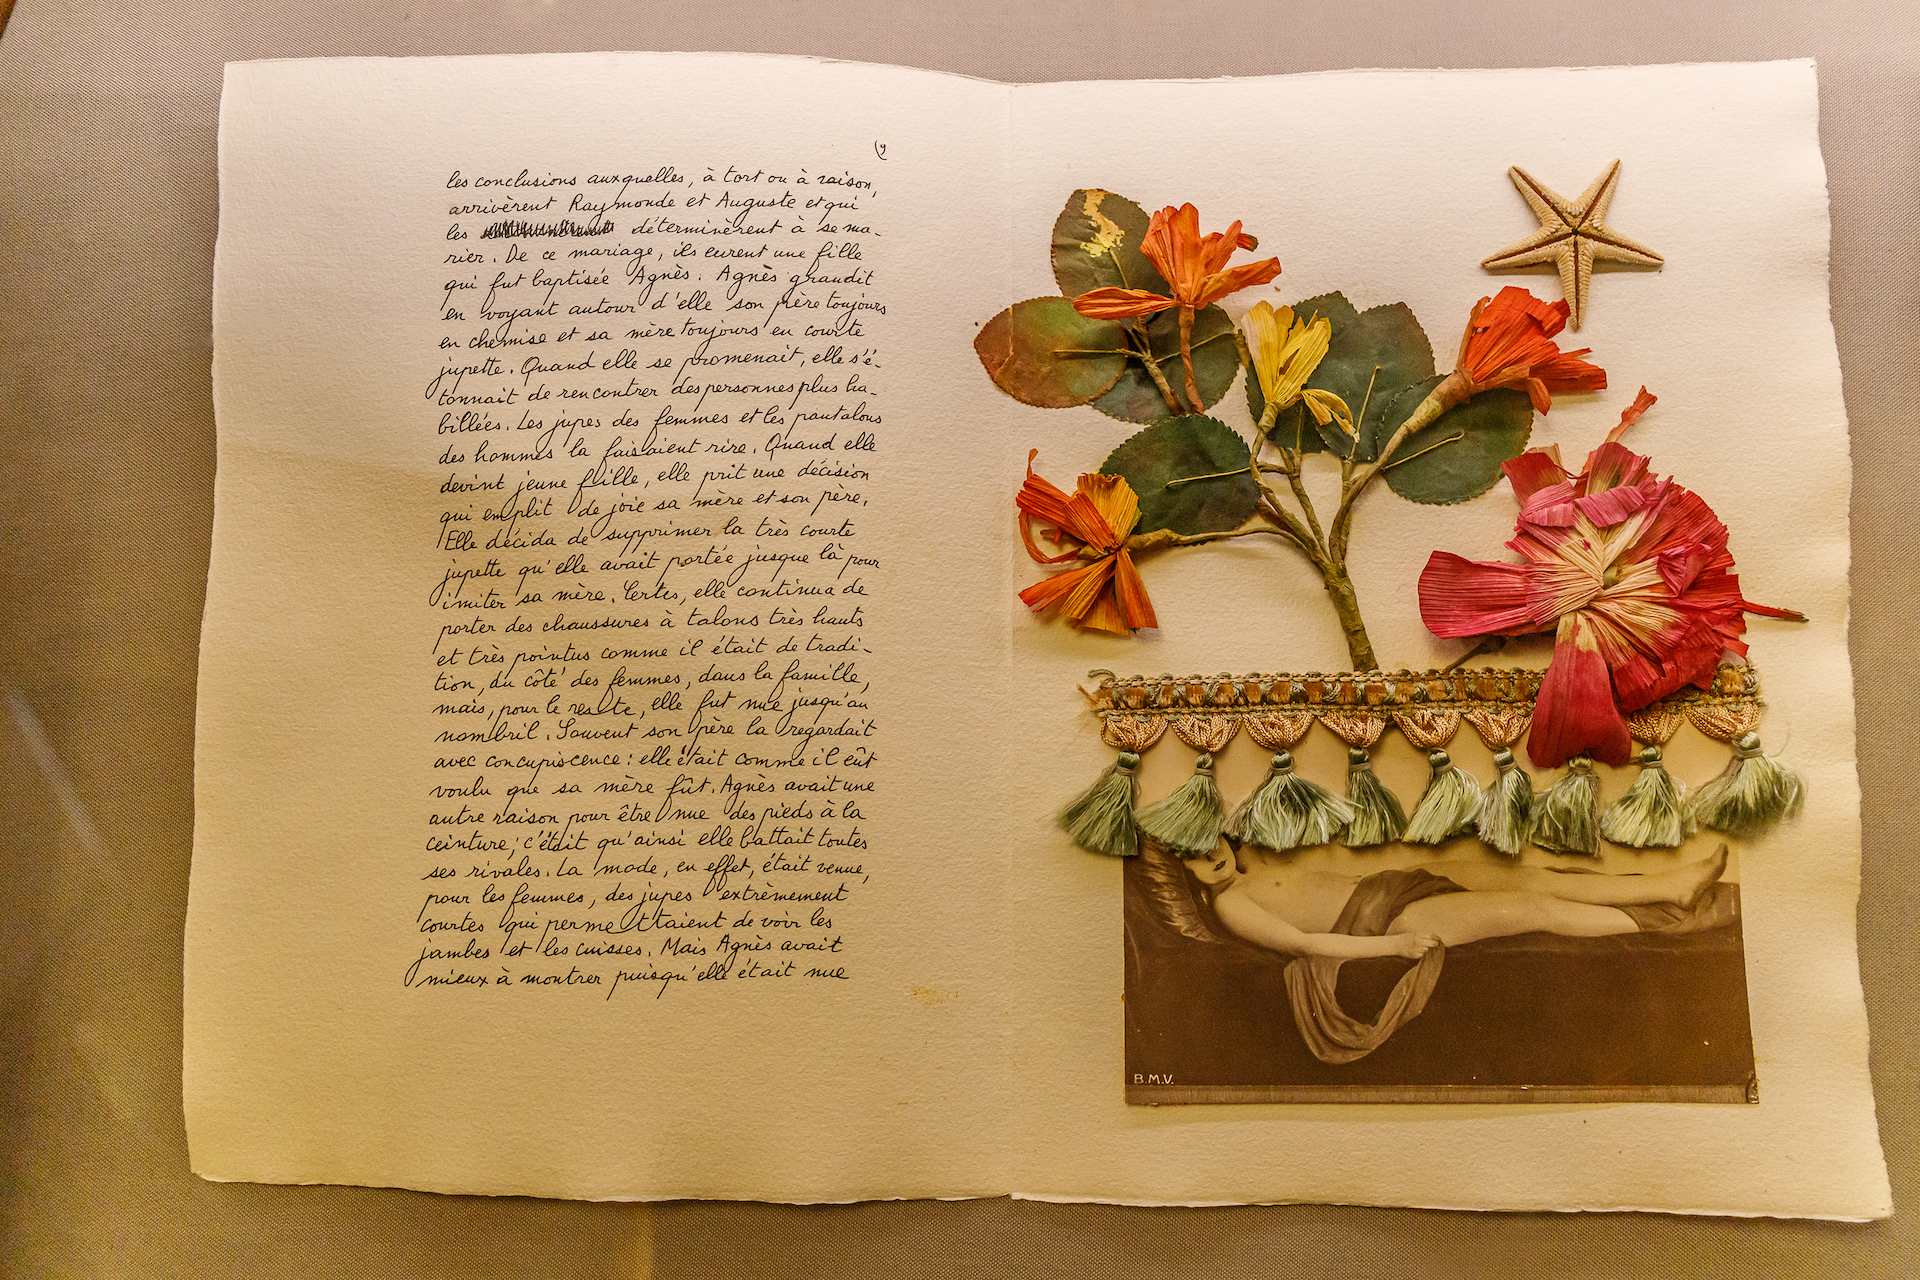 9
les conclusions auxquelles, à tort ou à raison,
arrivèrent Raymonde et Auguste et qui
les déterminèrent à se ma-
rier. De ce mariage, ils eurent une fille
qui fut baptisée Agnès. Agnès grandit
en voyant autour d'elle son père toujours
en chemise et sa mère toujours en courte
jupette. Quand elle se promenait, elle s'é-
tonnait de rencontrer des personnes plus ha-
billées. Les jupes des femmes et les pantalons
des hommes la faisaient rire. Quand elle
devint jeune fille, elle prit une décision
qui emplit de joie sa mère et son père.
Elle décida de supprimer la très courte
jupette qu'elle avait portée jusque là pour
imiter sa mère. Certes, elle continua de
porter des chaussures à talons très hauts
et très pointus comme il était de tradi-
tion, du côté des femmes, dans la famille,
mais, pour le reste, elle fut nue jusqu'au
nombril. Souvent son père la regardait
avec concupiscence : elle était comme il eût
voulu que sa mère fût. Agnès avait une
autre raison pour être nue des pieds à la
ceinture ; c'était qu'ainsi elle battait toutes
ses rivales. La mode, en effet, était venue,
pour les femmes, des jupes extrèmement
courtes qui permettaient de voir les
jambes et les cuisses. Mais Agnès avait
mieux à montrer puisqu'elle était nue
B.M.V.